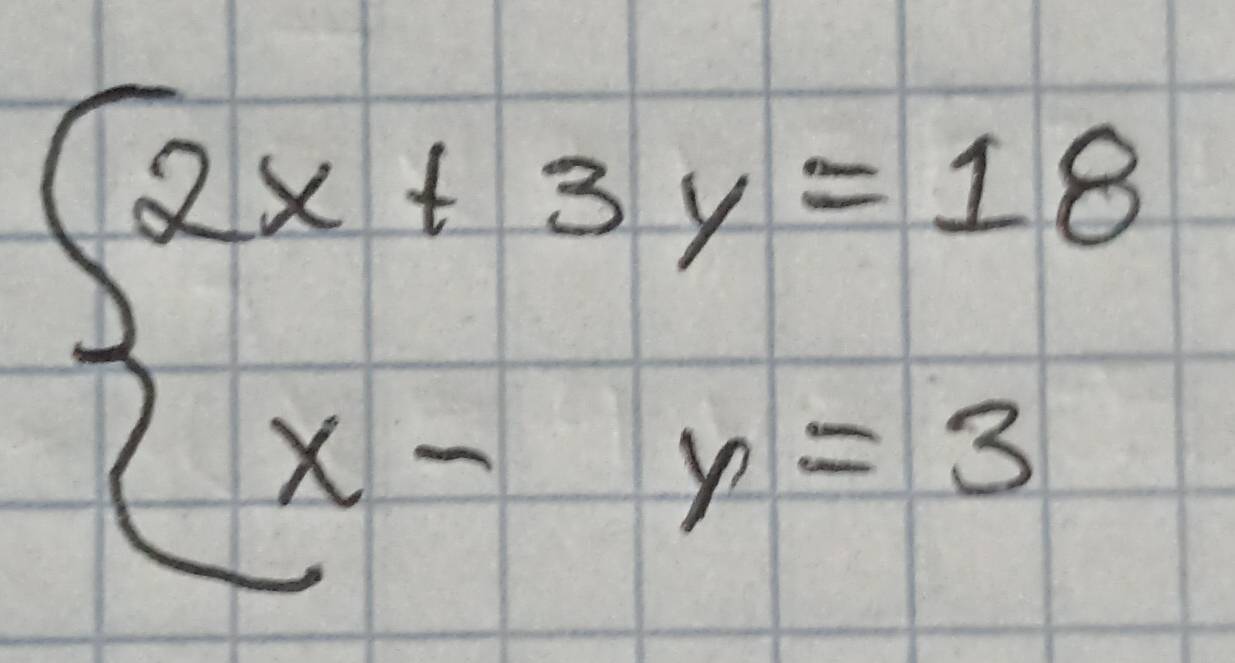 2x + 3y = 18
x - y = 3